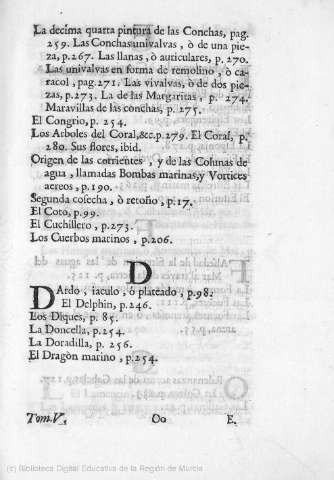 La decima quarta pintura de las Conchas, pag.
259. Las Conchas univalvas, ò de una pie-
za, p.267. Las llanas, ò auriculares, p. 270.
Las univalvas en forma de remolino, ò ca-
racol, pag.271. Las vivalvas, ò de dos pie-
zas, p.273. La de las Margaritas, p. 274.
Maravillas de las conchas, p. 275.
El Congrio, p. 254.
Los Arboles del Coral,&c.p.279. El Coral, p.
280. Sus flores, ibid.
Origen de las corrientes, y de las Colunas de
agua, llamadas Bombas marinas,y Vortices
aereos, p.190.
Segunda cosecha, ò retoño, p.17.
El Coto, p.99.
El Cuchillero, p.273.
Los Cuerbos marinos, p.206.
D
DArdo, iaculo, ò plateado, p.98.
El Delphin, p.246.
Los Diques, p. 85.
La Doncella, p.254.
La Doradilla, p. 256.
El Dragòn marino, p.254.
Tom.V. Oo E.
(c) Biblioteca Digital Educativa de la Región de Murcia